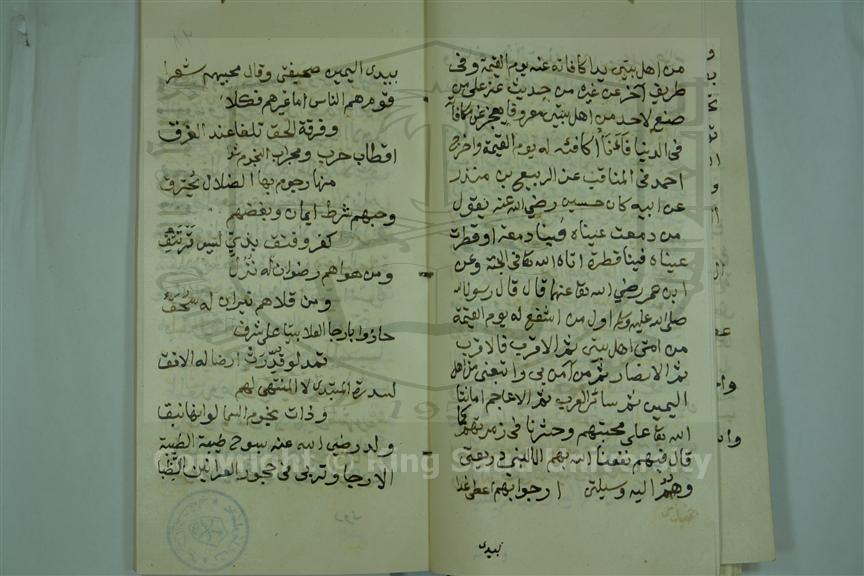 من اهل بيتي يدا كافاته عنه يوم القيمة وفي
طريق آخر عن غيره من حديث عن علي من
صنع لاحد من اهل بيتي معروفا فعجز عن مكافأته
في الدنيا فأنا أكافئه له يوم القيمة واخرج
احمد في المناقب عن الربيع بن منذر
عن ابيه كان حسين رضي الله عنه يقول
من دمعت عيناه فينا دمعة او قطرت
عيناه فينا قطرة اتاه الله تعا في الجنة وعن
ابن عمر رضي الله تعا عنهما قال قال رسول الله
صلى الله عليه وسلم اول من اشفع له يوم القيمة
من امتي اهل بيتي ثم الاقرب فالاقرب
ثم الانصار ثم من آمن بي واتبعني من اهل
اليمن ثم سائر العرب ثم الاعاجم اماتنا
الله تعا على محبتهم وحشرنا في زمرتهم كما
قال فيهم نفعنا الله بهم ال النبي ذريعتي
وهم اليه وسيلتي ارجوا بهم اعطى غدا
بيدي
بيدي اليمين صحيفتي وقال محبهم شعرا
قوم هم الناس اما غيرهم فكلا
وفرقة الحق تلفا عند الفرق
اقطاب حرب ومحراب النجوم
منها رجوم بها الضلال تحترق
وحبهم شرط ايمان وبغضهم
كفر وفتق بذي ليس يرتتق
ومن هواهم رضوان له نزل
ومن قلاهم نيران له
حازوا بارجا العلا بيتا على شرف
تمد لو قدرت ارضا له الافق
لسدرة المبتدى لا المنتهى لهم
وذات نجوم السما لو انها نبق
ولد رضى الله عنه بسوح طيبة الطيبة
الارجا وتربى في حجور العرانين
Copyright © King Saud University
1957